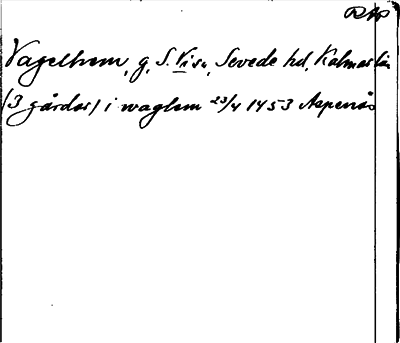 RAP
Vagelhem, g, S. Vi s:n, Sevede hd, Kalmar län
(3 gårdar) i waglem 23/4 1453 Aspenäs